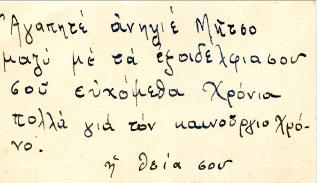 Ἀγαπητέ ἀνηψιέ Μῆτσο
μαζύ μέ τά ἐξαδέλφια σου
σοῦ εὐχόμεθα Χρόνια
πολλά γιά τόν καινούργιο Χρό-
νο.
ἡ θεία σου